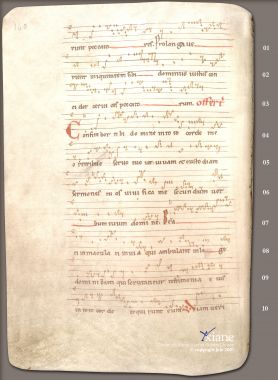 140
runt peccato res. Prolongaue 01
runt iniquitatem sibi dominus iustus con 02
ci det ceruices peccato rum. offert 03
Confitebor tibi domine in toto corde me 04
o retribue seruo tuo uiuam et custodiam 05
sermones tuos uiuifica me secundum uer 06
bum tuum domine. Bea 07
ti inmaculati in uia qui ambulant in lege 08
domini qui scrutantur testimonia eius 09
in toto cor de exquirunt eum Viam ueri 10
© copyright